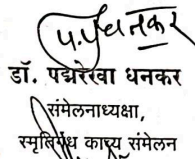 डॉ. पद्मरेखा धनकर
संमेलनाध्यक्षा,
स्मृतिगंध काव्य संमेलन